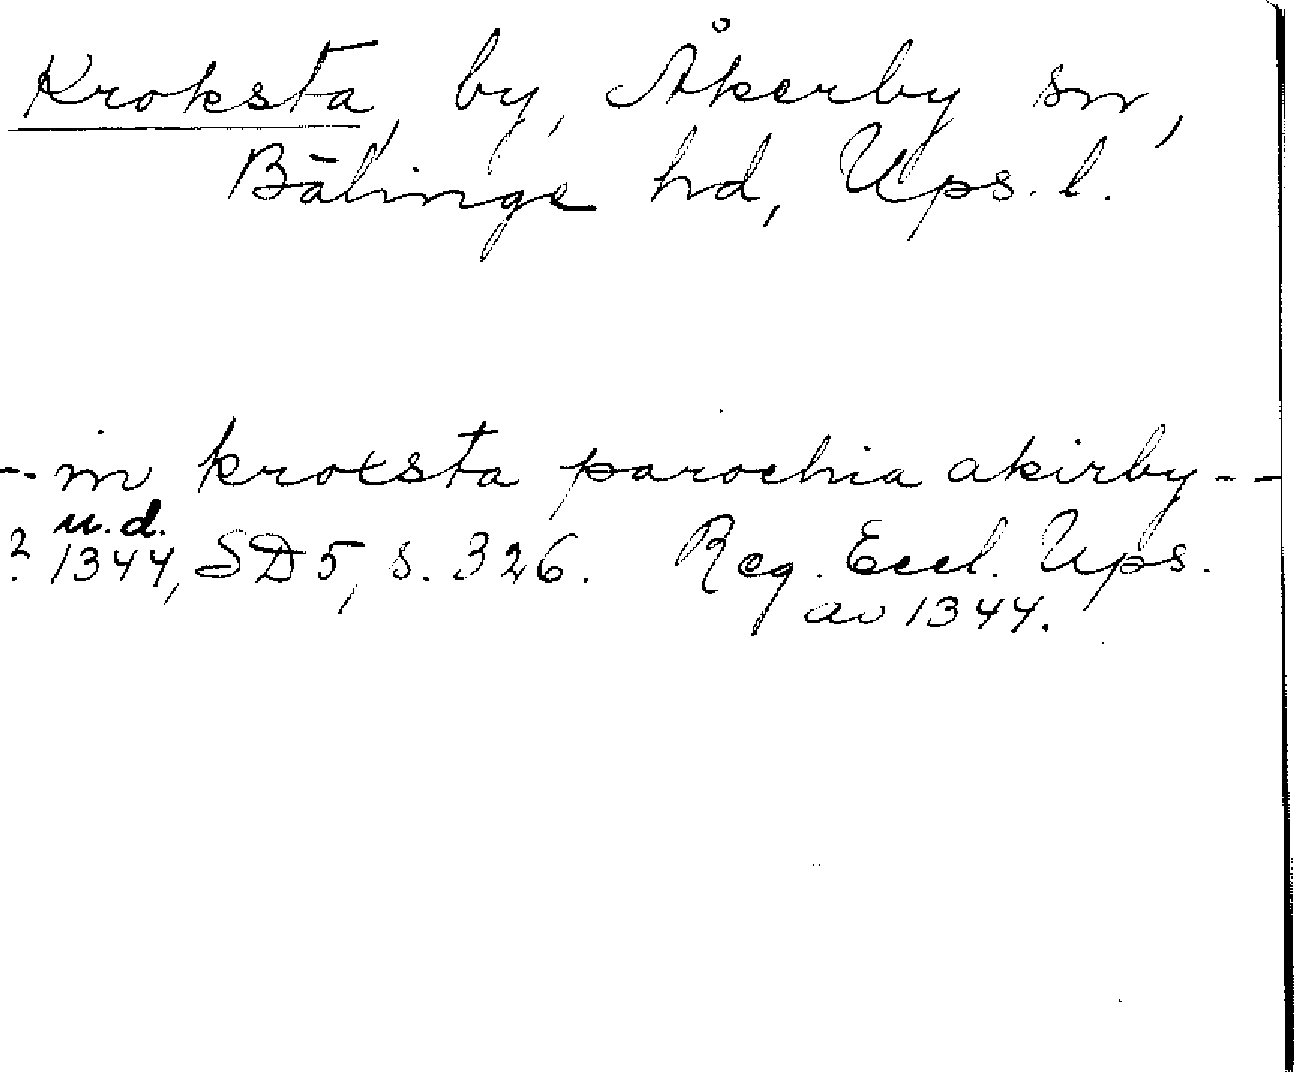 Kroksta, by, Åkerby sn,
Bälinge hd, Ups. l.
-- in krocsta parochia akirby --
u.d.
? 1344, SD 5, s. 326. Reg. Eccl. Ups.
av 1344.